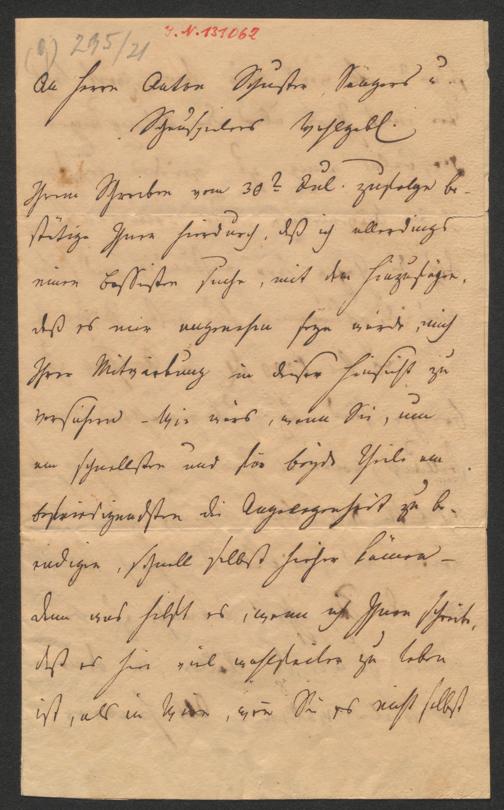 (9) 235/21
I.N. 131062
An Herrn Anton Schuster Sängers u
Schauspielers Wohlgeb.
Ihrem Schreiben vom 30t Jul. zufolge be-
stätige Ihnen hierdurch, daß ich allerdings
einen Bassisten suche, mit dem Hinzufügen,
daß es mir angenehm seyn würde, mich
Ihrer Mitwirkung in dieser Hinsicht zu
versichern – Wie wärs, wenn Sie, um
am schnellsten und für beyde Theile am
befriedigendsten die Angelegenheit zu be-
endigen, schnell selbst hieher kämen –
denn was hilft es, wenn ich Ihnen schreibe,
daß es hier viel wohlfeiler zu leben
ist, als in Wien, wenn Sie es nicht selbst